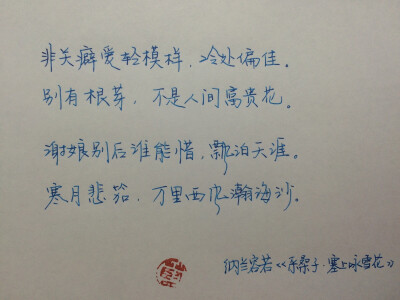 非关癖爱轻模样，冷处偏佳。
别有根芽，不是人间富贵花。
谢娘别后谁能惜，飘泊天涯。
寒月悲笳，万里西风瀚海沙。
纳兰容若《采桑子·塞上咏雪花》